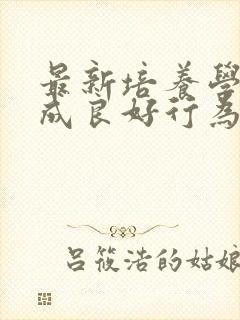 最新培養學
成良好行為
吕筱浩的姑娘